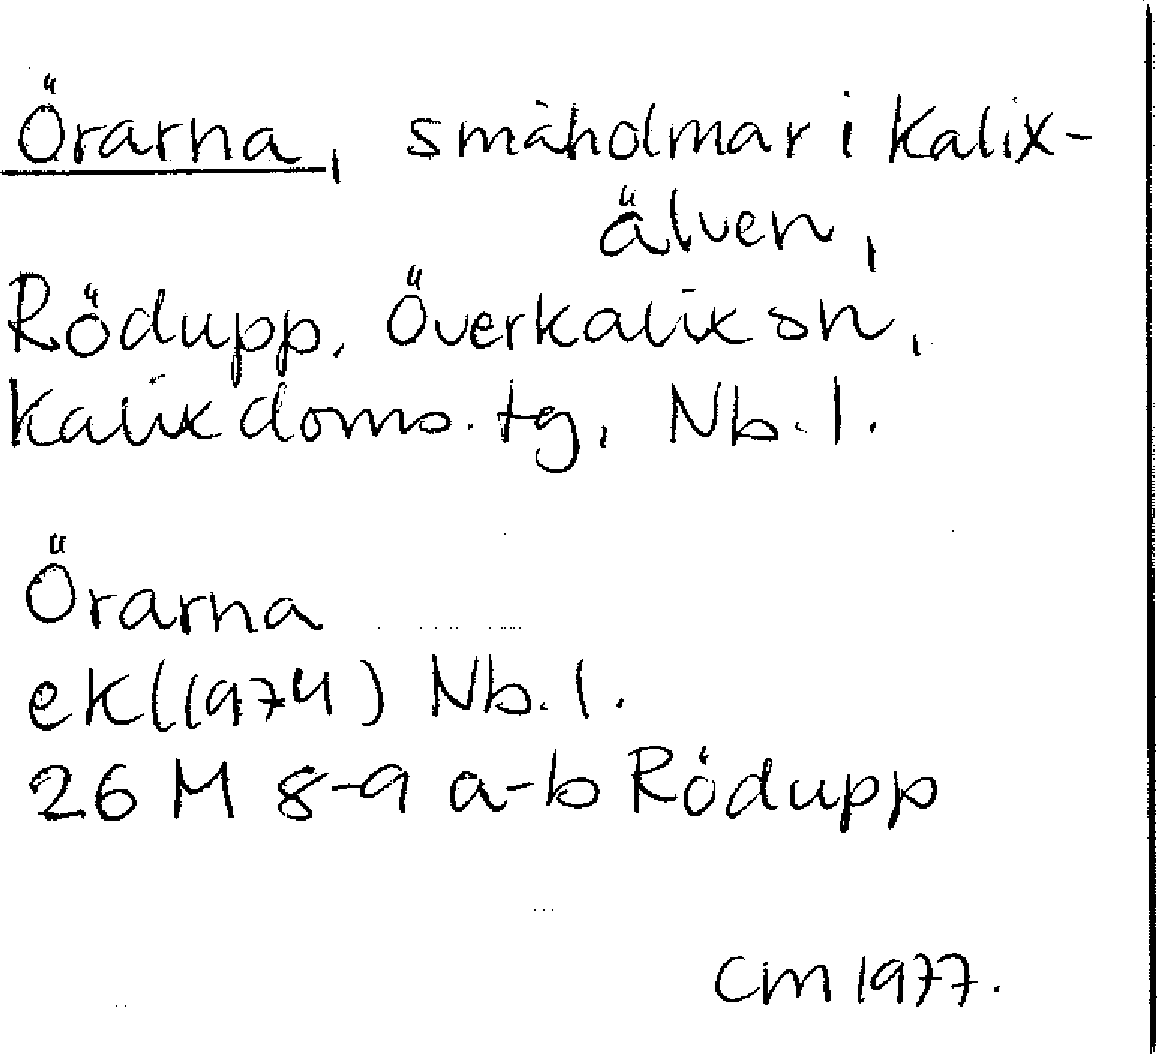 Örarna, småholmar i Kalix-
älven,
Rödupp, Överkalix sn,
Kalix doms. tg, Nb. l.
Örarna
ek (1974) Nb. l.
26 M 8-9 a-b Rödupp
CM 1977.